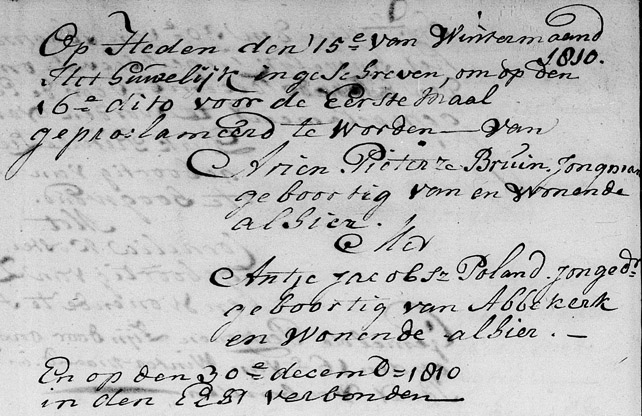 Op Heden den 15e van Wintermaand
1810.
Het huwelijk ingeschreven, om op den
16e dito voor de Eerste Maal
geproclameerd te worden — van
Arien Pieterze Bruin Jongman
geboortig van en Wonende
alhier.
Met
Antje Jacobsz Poland jongedr
geboortig van Abbekerk
en Wonende alhier. —
En op den 30e decemb= 1810
in den Egt verbonden